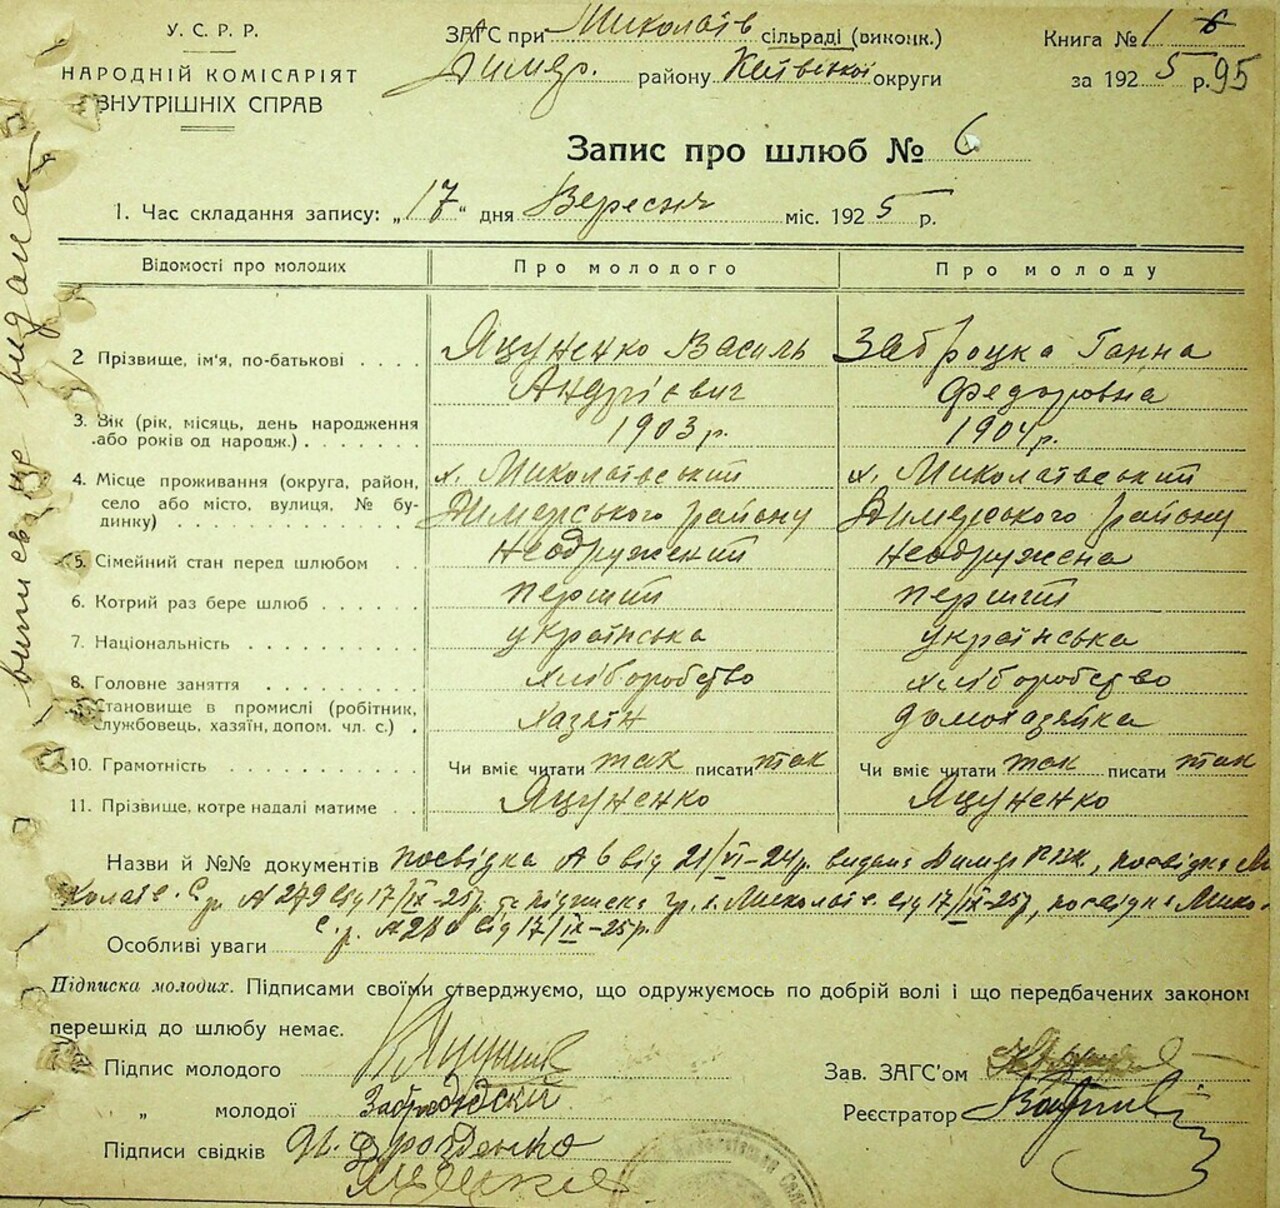 У. С. Р. Р.
НАРОДНІЙ КОМІСАРІЯТ
ВНУТРІШНІХ СПРАВ
ЗАГС при Миколаїв сільраді (виконк.)
Димер. району Київської округи
Книга № 1
за 1925 р. 95
Запис про шлюб № 6
1. Час складання запису: „17" дня Вересня міс. 1925 р.
Відомості про молодих Про молодого Про молоду
2 Прізвище, ім'я, по-батькові Яцуненко Василь Забродка Ганна
Андрієвич Федоровна
3. Вік (рік, місяць, день народження
або років од народж.) 1903 р. 1904 р.
4. Місце проживання (округа, район, х. Миколаївський х. Миколаївський
село або місто, вулиця, № бу-
динку) Димерського району Димерського району
5. Сімейний стан перед шлюбом Неодружений неодружена
6. Котрий раз бере шлюб перший перший
7. Національність українська українська
8. Головне заняття хліборобство хліборобство
9. Становище в промислі (робітник,
службовець, хазяїн, допом. чл. с.) хазяїн домохазяйка
10. Грамотність Чи вміє читати так писати так Чи вміє читати так писати так
11. Прізвище, котре надалі матиме Яцуненко Яцуненко
Назви й №№ документів посвідка № 6 від 21/VI–24р. видана Димер РВК, посвідка Ми-
колаїв. С.р. № 279 від 17/IX–25р. та підписка гр. х. Миколаїв. від 17/IX–25р, посвідка Мико-
С.р. № 280 від 17/IX–25р.
Особливі уваги
Підписка молодих. Підписами своїми стверджуємо, що одружуємось по добрій волі і що передбачених законом
перешкід до шлюбу немає.
Підпис молодого
„ молодої
Підписи свідків
Зав. ЗАГС'ом
Реєстратор